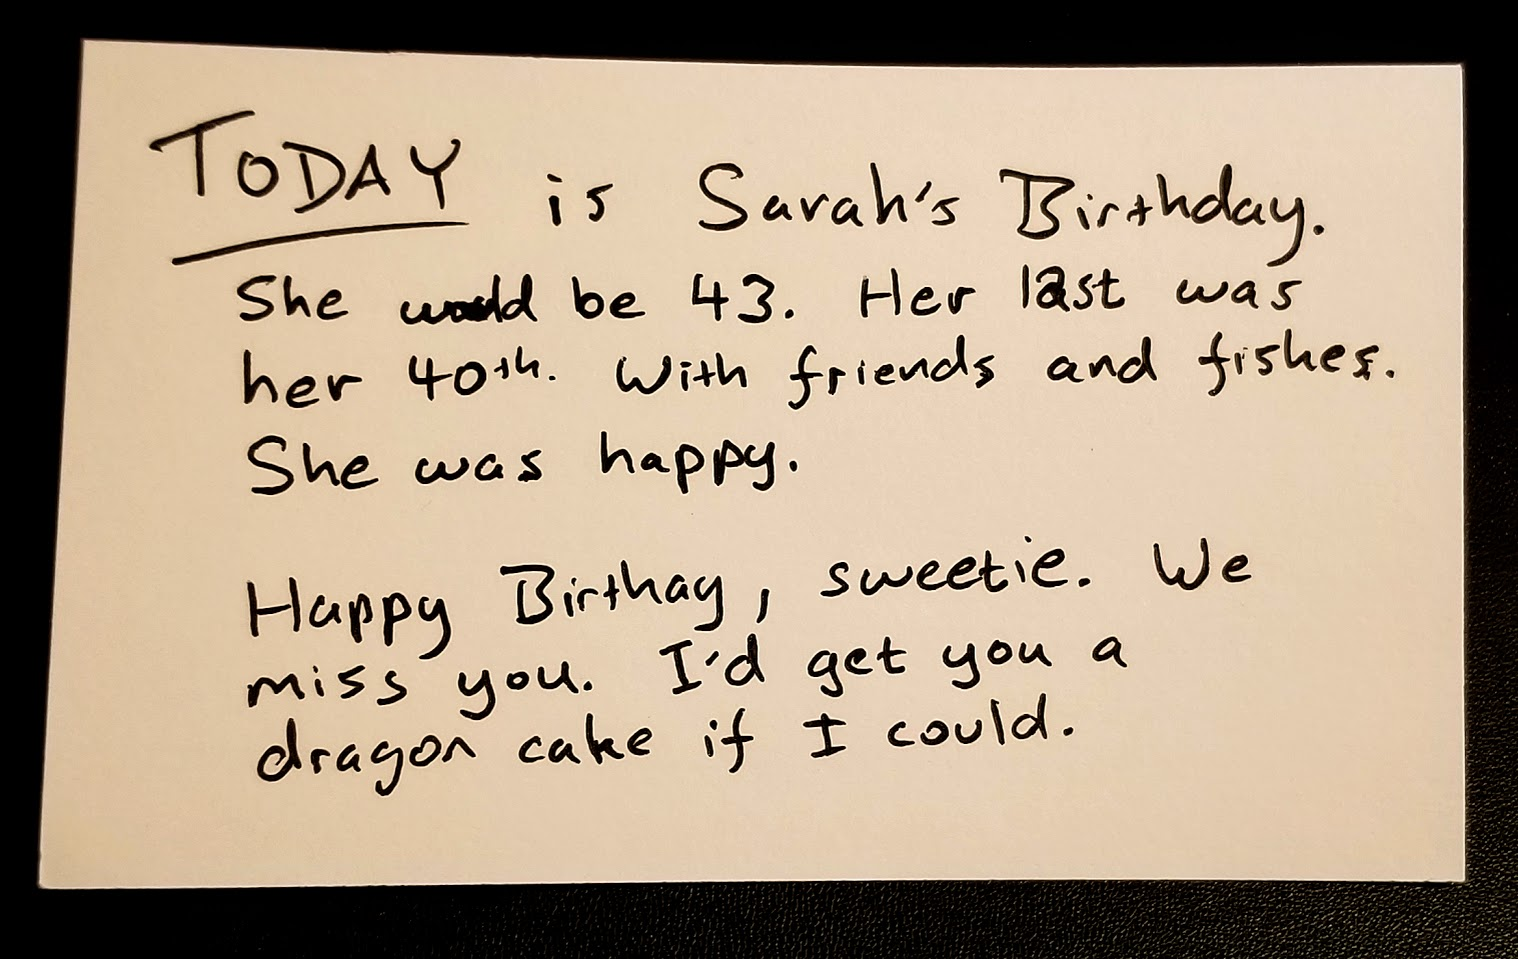 TODAY is Sarah's Birthday.
She would be 43. Her last was
her 40th. With friends and fishes.
She was happy.
Happy Birthay, sweetie. We
miss you. I'd get you a
dragon cake if I could.